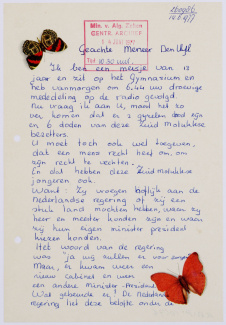 Min. v. Alg. Zaken
CENTR. ARCHIEF
14 JUNI 1977
Geachte Meneer Den Uyl
Ik ben een meisje van 13
jaar en zit op het Gymnasium en
heb vanmorgen om 6.44 uw droevige
mededeling op de radio gevolgd
Nu vraag ik aan U, moest het zo
ver komen dat er 2 gijzelaars dood zijn
en 6 doden van deze Zuid Molukkse
bezetters.
U moet toch ook wel toegeven,
dat een mens recht heeft om, om
zijn recht te vechten.
En dat hebben deze Zuid Molukkse
jongeren ook.
Want: Zij vroegen beleefd aan de
Nederlandse regering of zij een
stuk land mochten hebben, waar zij
heer en meester konden zijn en waar
zij hun eigen minister president
kiezen konden.
Het woord van de regering
was "ja wij zullen er voor
Maar, er kwam weer een
nieuw cabinet en
een andere Minister-President.
Wat gebeurde er? De Nederlandse
regering liet deze belofte onder de